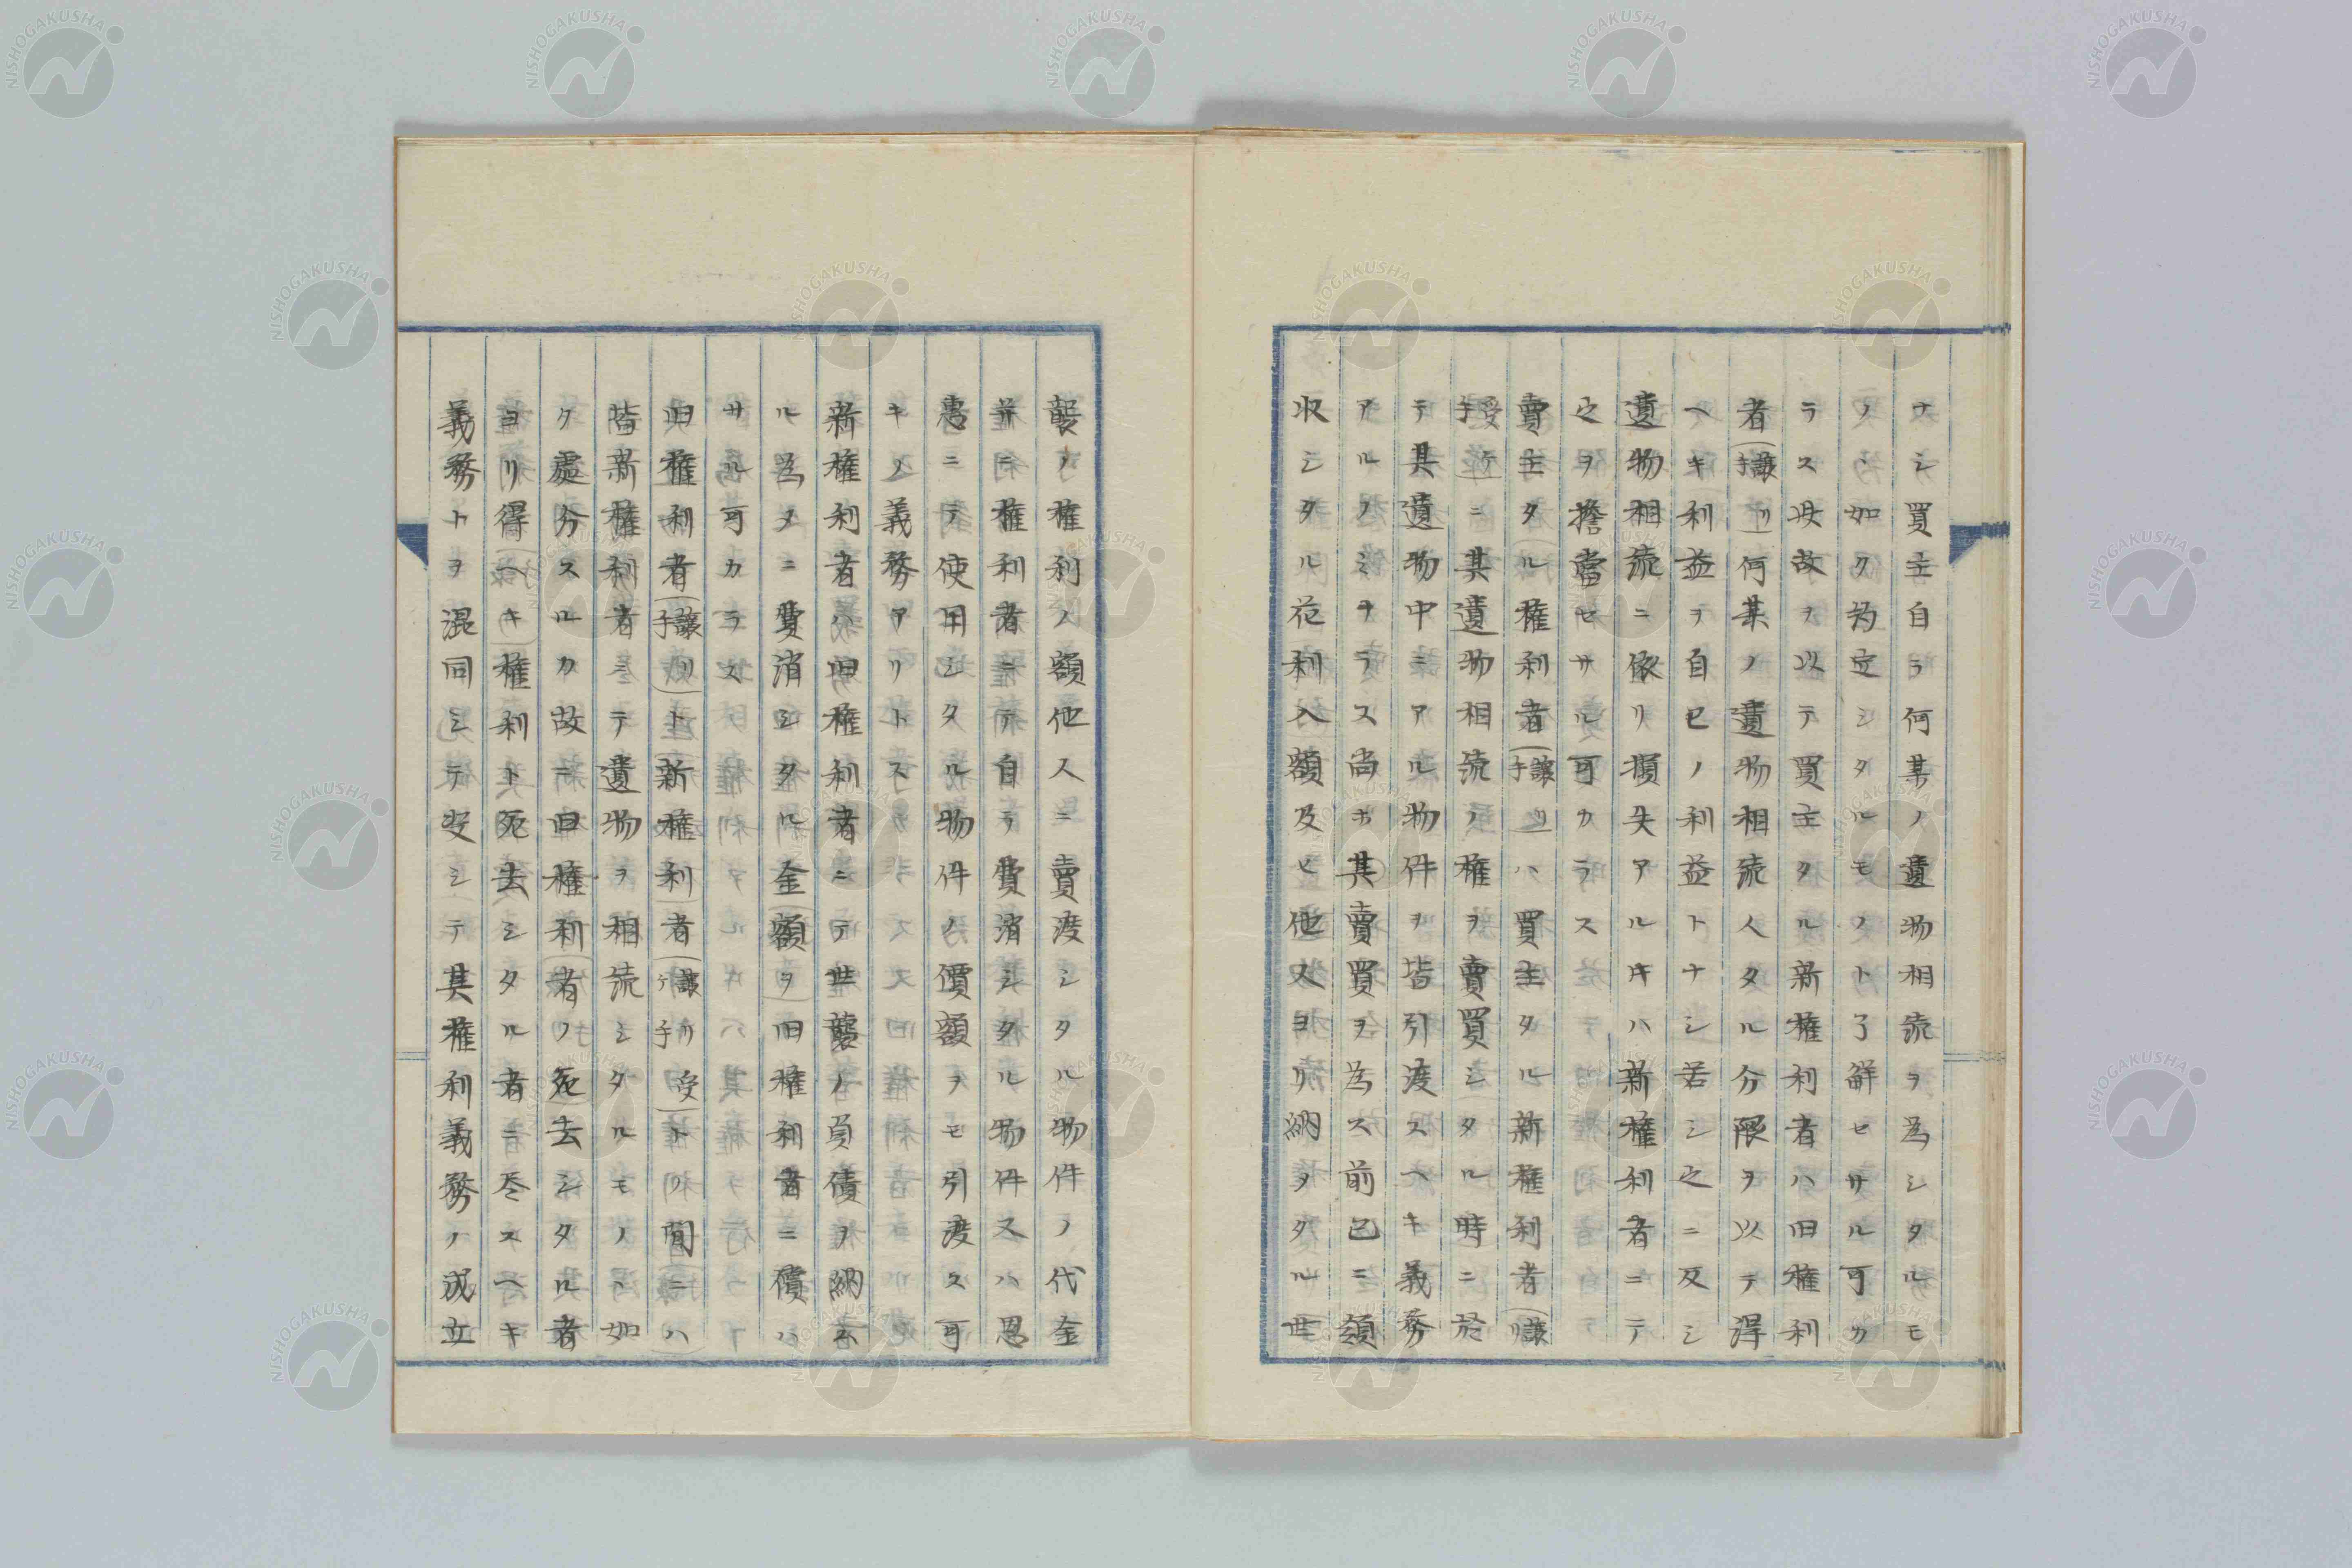 ナシ買主自ラ何某ノ遺物相続ヲ為シタルモ
ノヽ如ク約定シタルモノト了解セサル可カ
ラス此故ヲ以テ買主タル新権利者ハ旧権利
者(譲リ手)何某ノ遺物相続人タル分限ヲ以テ得
ヘキ利益ヲ自己ノ利益トナシ若シ之ニ反シ
遺物相続ニ依リ損失アルキハ新権利者ニテ
之ヲ擔當セサル可カラス
賣主タル権利者(譲リ手)ハ買主タル新権利者(譲リ
受ケ手)ニ其遺物相続ノ権ヲ賣買シタル時ニ於
テ其遺物中ニアル物件ヲ皆引渡スヘキ義務
アルノミナラス尚ホ其賣買ヲ為ス前已ニ領
収シタル花利入額及ヒ他人ヨリ納メタル世
襲ノ権利ノ額他人ニ賣渡シタル物件ノ代金
并ニ権利者ニテ自ラ費消シタル物件又ハ恩
惠ニテ使用シタル物件ノ價額ヲモ引渡ス可
キノ義務アリトス
新権利者ハ旧権利者ニテ世襲ノ負債ヲ納ム
ル為メニ費消シタル金額ヲ旧権利者ニ償ハ
サル可カラス
旧権利者(譲リ手)ト新権利者(譲リ受ケ手)トノ間ニハ
皆新権利者ニテ遺物ヲ相続シタルモノヽ如
ク處分スルカ故ニ旧権利者ノ死去シタル者
ヨリ得ヘキ権利ト死去シタル者ニ尽スヘキ
義務トヲ混同シテ安シテ其権利義務ノ成立